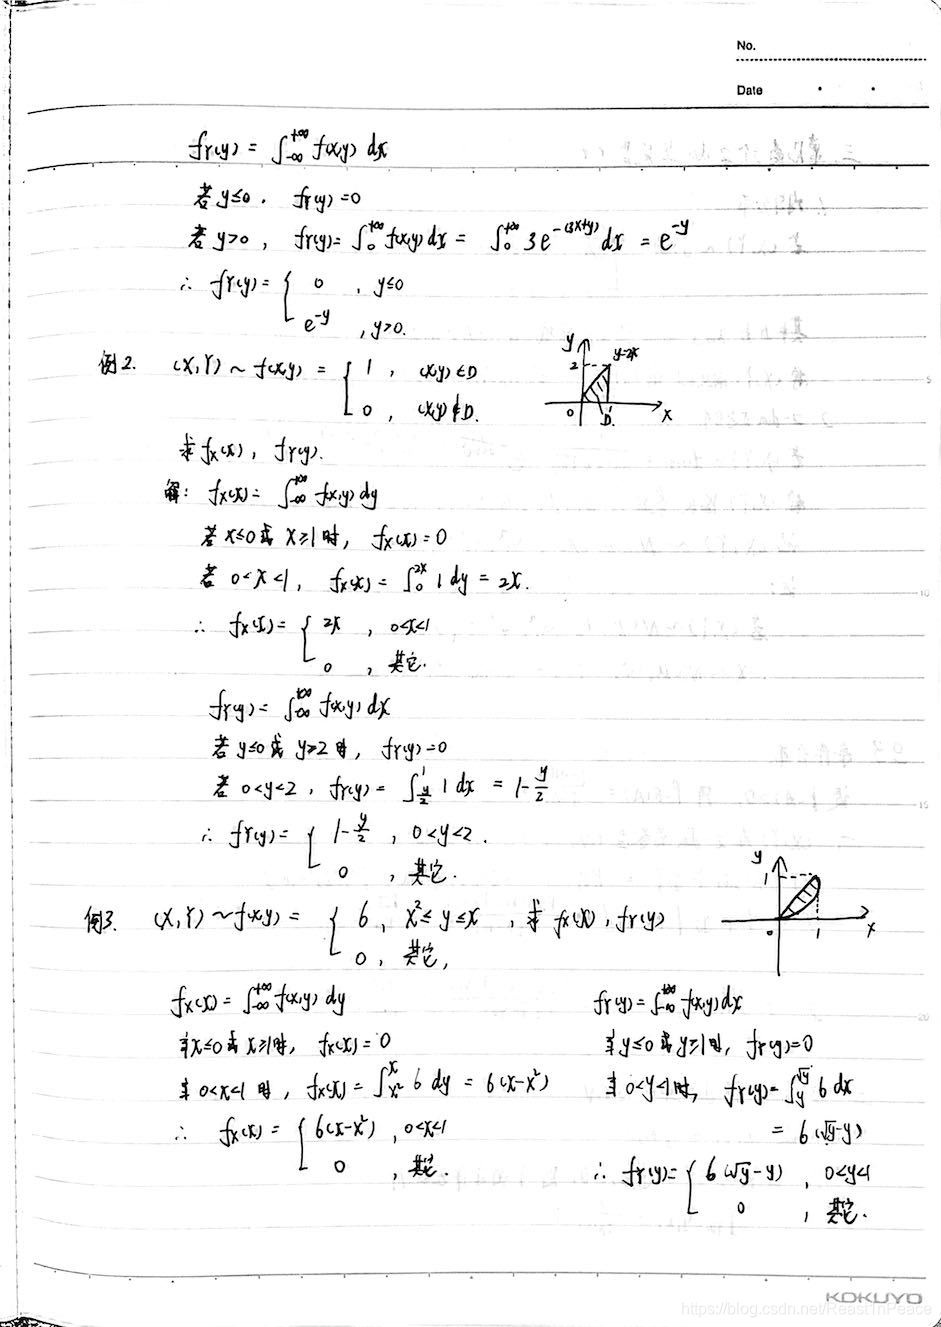 No.
Date
f_Y(y) = ∫_{-∞}^{+∞} f(x,y) dx
若 y≤0, f_Y(y)=0
若 y>0, f_Y(y)= ∫_0^{+∞} f(x,y) dx = ∫_0^{+∞} 3e^{-(3x+y)} dx = e^{-y}
∴ f_Y(y)= { 0 , y≤0
e^{-y} , y>0.
例2. (X,Y) ~ f(x,y) = { 1 , (x,y)∈D
0 , (x,y)∉D.
y
2
y=2x
0
1
D
x
求 f_X(x), f_Y(y).
解: f_X(x)= ∫_{-∞}^{+∞} f(x,y) dy
若 x≤0 或 x≥1 时, f_X(x)=0
若 0<x<1, f_X(x)= ∫_0^{2x} 1 dy = 2x.
∴ f_X(x)= { 2x , 0<x<1
0 , 其它.
f_Y(y)= ∫_{-∞}^{+∞} f(x,y) dx
若 y≤0 或 y≥2 时, f_Y(y)=0
若 0<y<2, f_Y(y)= ∫_{y/2}^1 1 dx = 1-y/2
∴ f_Y(y)= { 1-y/2 , 0<y<2.
0 , 其它.
例3. (X,Y) ~ f(x,y) = { 6, x²≤y≤x , 求 f_X(x), f_Y(y)
0, 其它,
y
1
0
1
x
f_X(x)= ∫_{-∞}^{+∞} f(x,y) dy
当 x≤0 或 x≥1 时, f_X(x)=0
当 0<x<1 时, f_X(x)= ∫_{x²}^x 6 dy = 6(x-x²)
∴ f_X(x)= { 6(x-x²) , 0<x<1
0 , 其它.
f_Y(y)= ∫_{-∞}^{+∞} f(x,y) dx
当 y≤0 或 y≥1 时, f_Y(y)=0
当 0<y<1 时, f_Y(y)= ∫_y^{√y} 6 dx
= 6(√y-y)
∴ f_Y(y)= { 6(√y-y) , 0<y<1
0 , 其它.
KOKUYO
https://blog.csdn.net/ReastInPeace